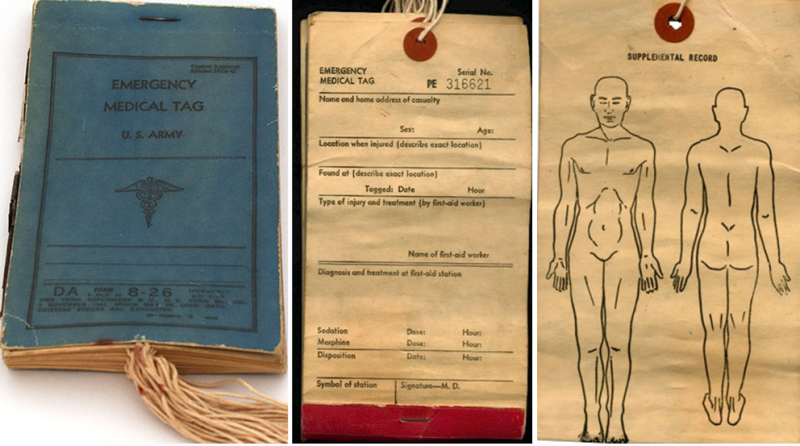 EMERGENCY
MEDICAL TAG
U. S. ARMY
DA FORM 8-26
EMERGENCY
MEDICAL TAG
Serial No.
PE 316621
Name and home address of casualty
Sex: Age:
Location when injured (describe exact location)
Found at (describe exact location)
Tagged: Date Hour
Type of injury and treatment (by first-aid worker)
Name of first-aid worker
Diagnosis and treatment at first-aid station
Sedation Dose: Hour:
Morphine Dose: Hour:
Disposition Date: Hour:
Symbol of station Signature—M. D.
SUPPLEMENTAL RECORD